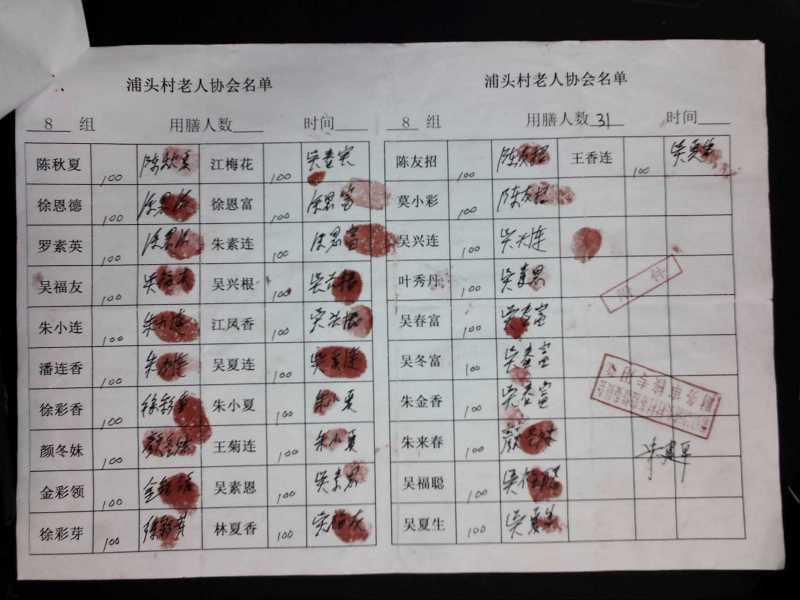 浦头村老人协会名单
8 组 用膳人数 时间
陈秋夏 100 陈秋夏 江梅花 100
徐恩德 100 徐恩富 100 徐恩富
罗素英 100 朱素连 100 徐恩富
吴福友 100 吴兴根 100 吴兴根
朱小连 100 朱小连 江凤香 100 吴兴根
潘连香 100 朱小连 吴夏连 100 吴夏连
徐彩香 100 徐彩香 朱小夏 100 朱小夏
颜冬妹 100 颜冬妹 王菊连 100 朱小夏
金彩领 100 金彩领 吴素恩 100 吴素恩
徐彩芽 100 徐彩芽 林夏香 100
浦头村老人协会名单
8 组 用膳人数 31 时间
陈友招 100 陈友招 王香连 100 吴夏生
莫小彩 100 陈友招
吴兴连 100 吴兴连
叶秀丹 100
吴春富 100 吴春富
吴冬富 100 吴春富
朱金香 100 吴春富
朱来春 100
吴福聪 100 吴福聪
吴夏生 100 吴夏生